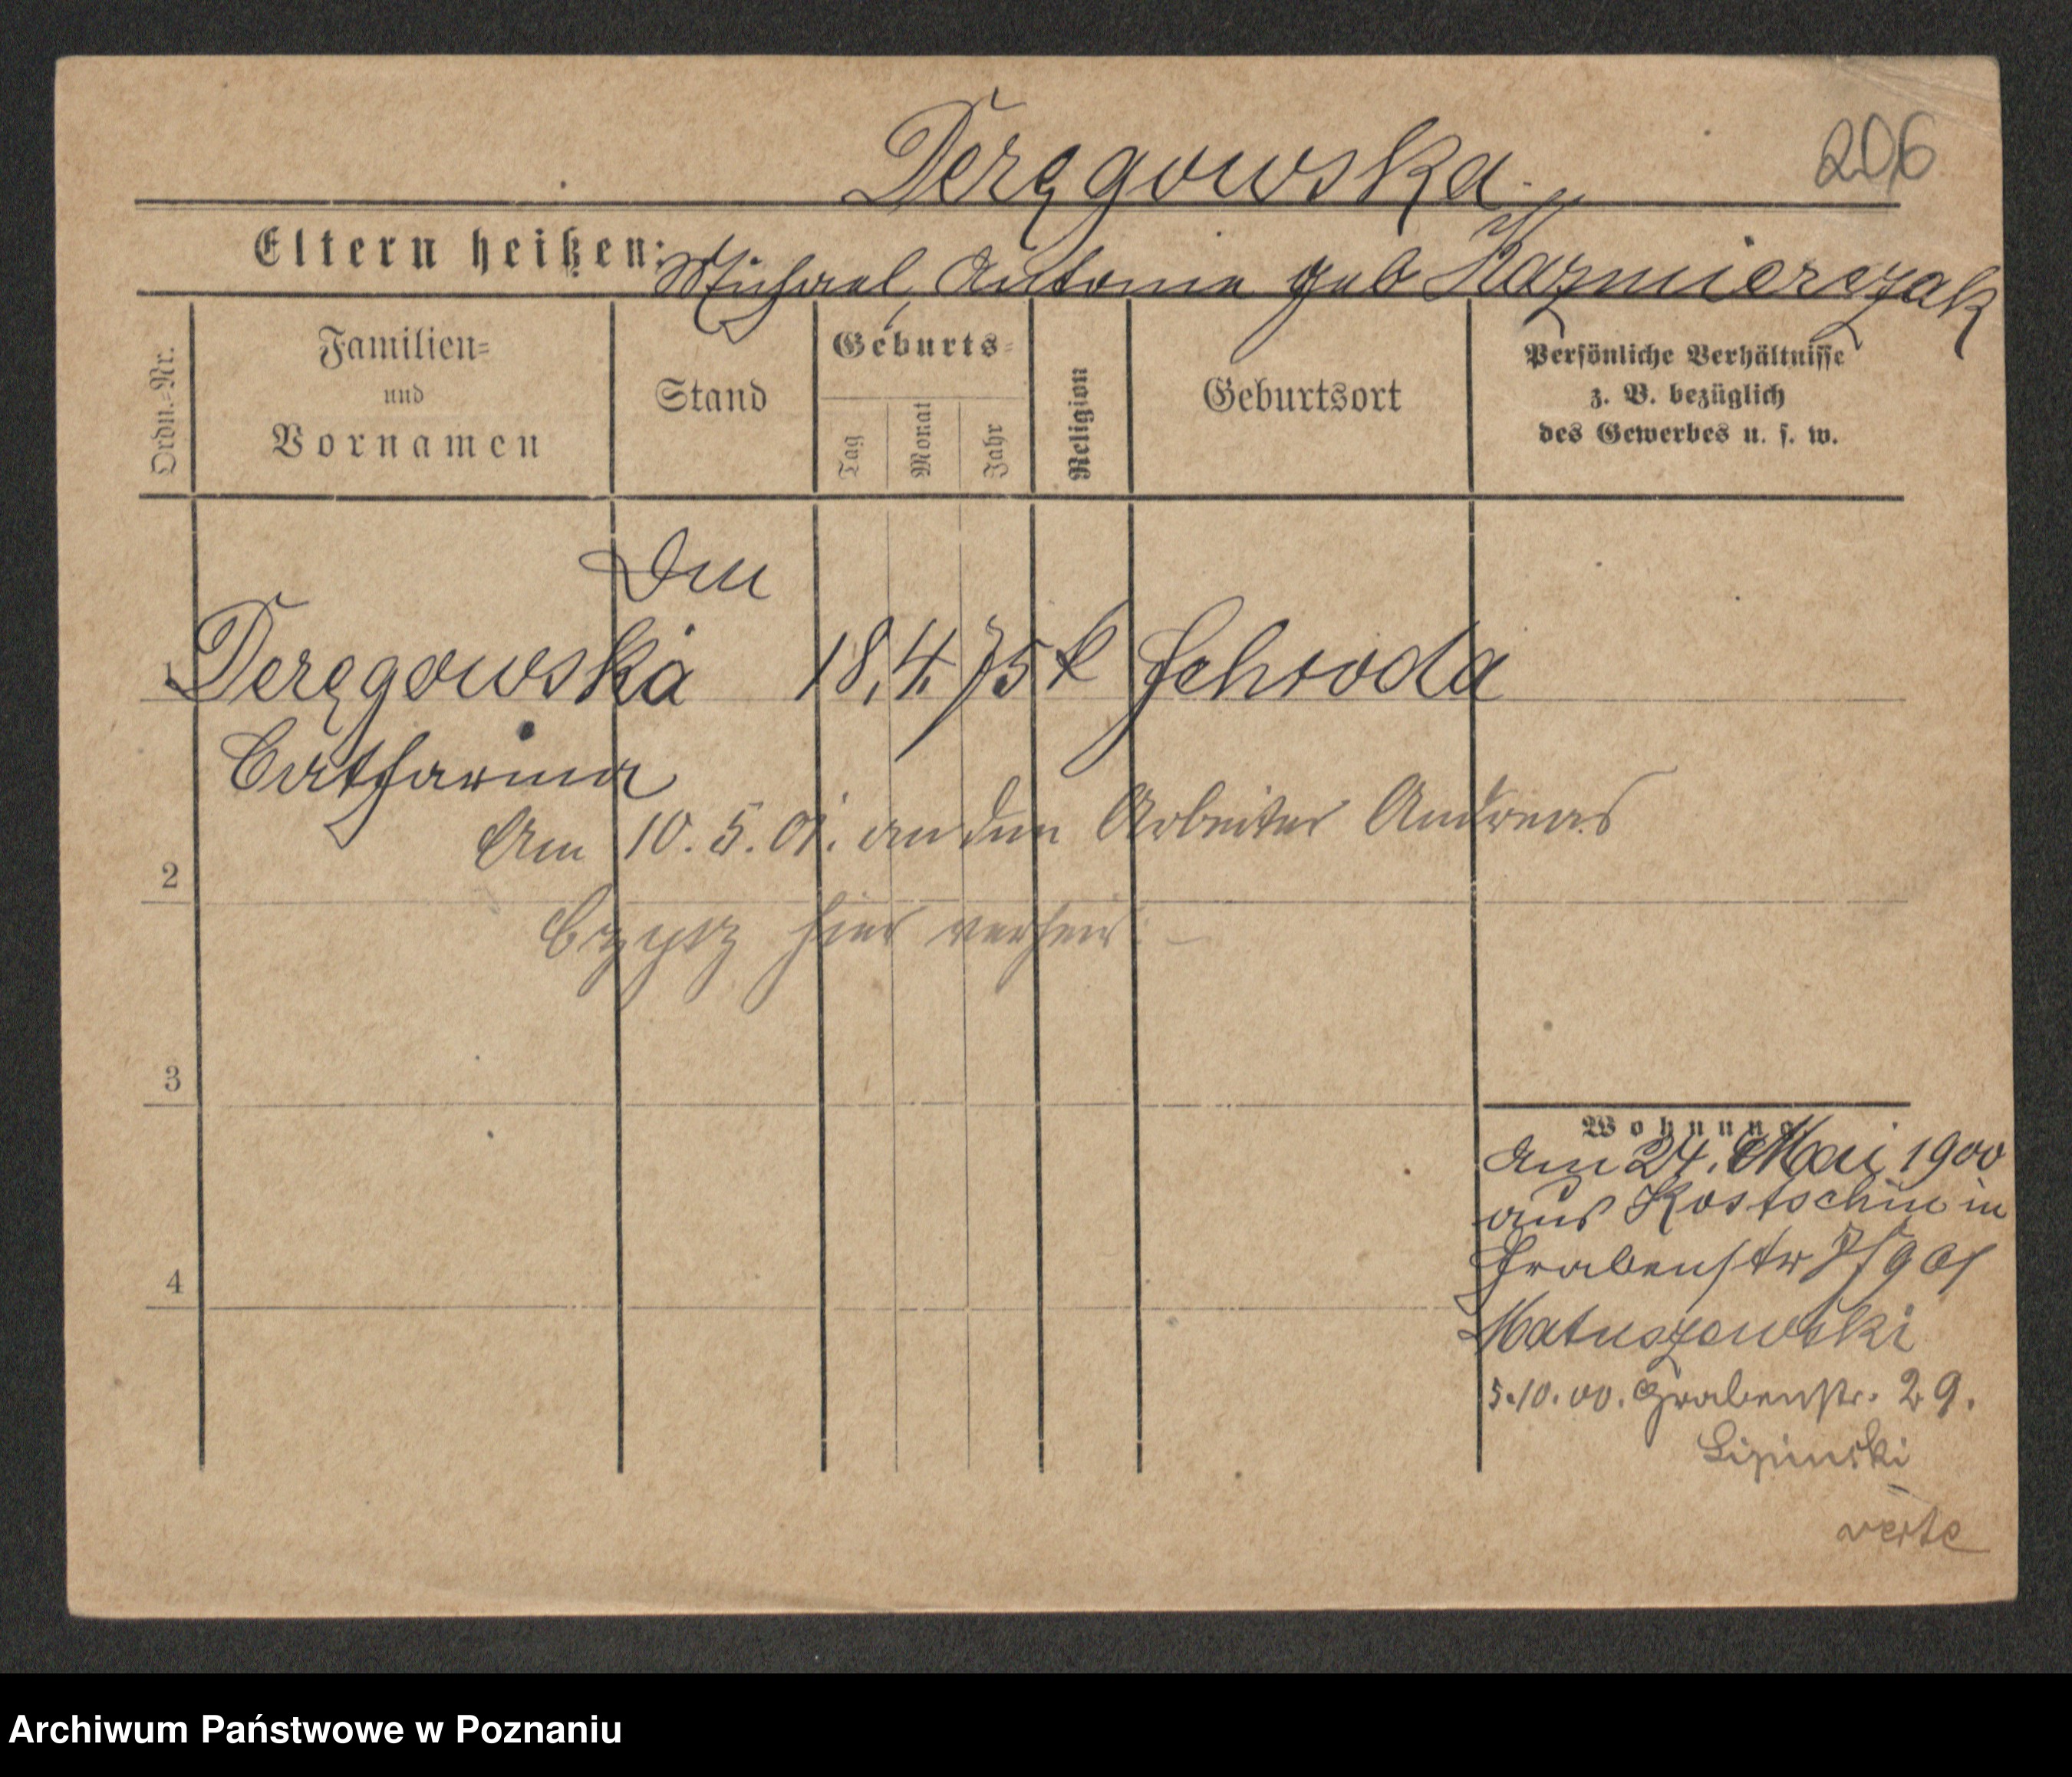 Deręgowska
206
Eltern heißen: Michael, Antonie geb Kazmierczak
Ordn.-Nr.
Familien-
und
Vornamen
Stand
Geburts-
Tag
Monat
Jahr
Religion
Geburtsort
Persönliche Verhältnisse
z. B. bezüglich
des Gewerbes u. s. w.
1 Deręgowska 18. 4. 75 k Schroda
Catharina
Am 10. 5. 01. an den Arbeiter Andreas
2
hier verheir. –
3
4
Wohnung
Am 24. Mai 1900
aus Kostschin in
Grabenstr
Matuszewski
5.10.00. Grabenstr. 29.
Lipinski
verte
Archiwum Państwowe w Poznaniu